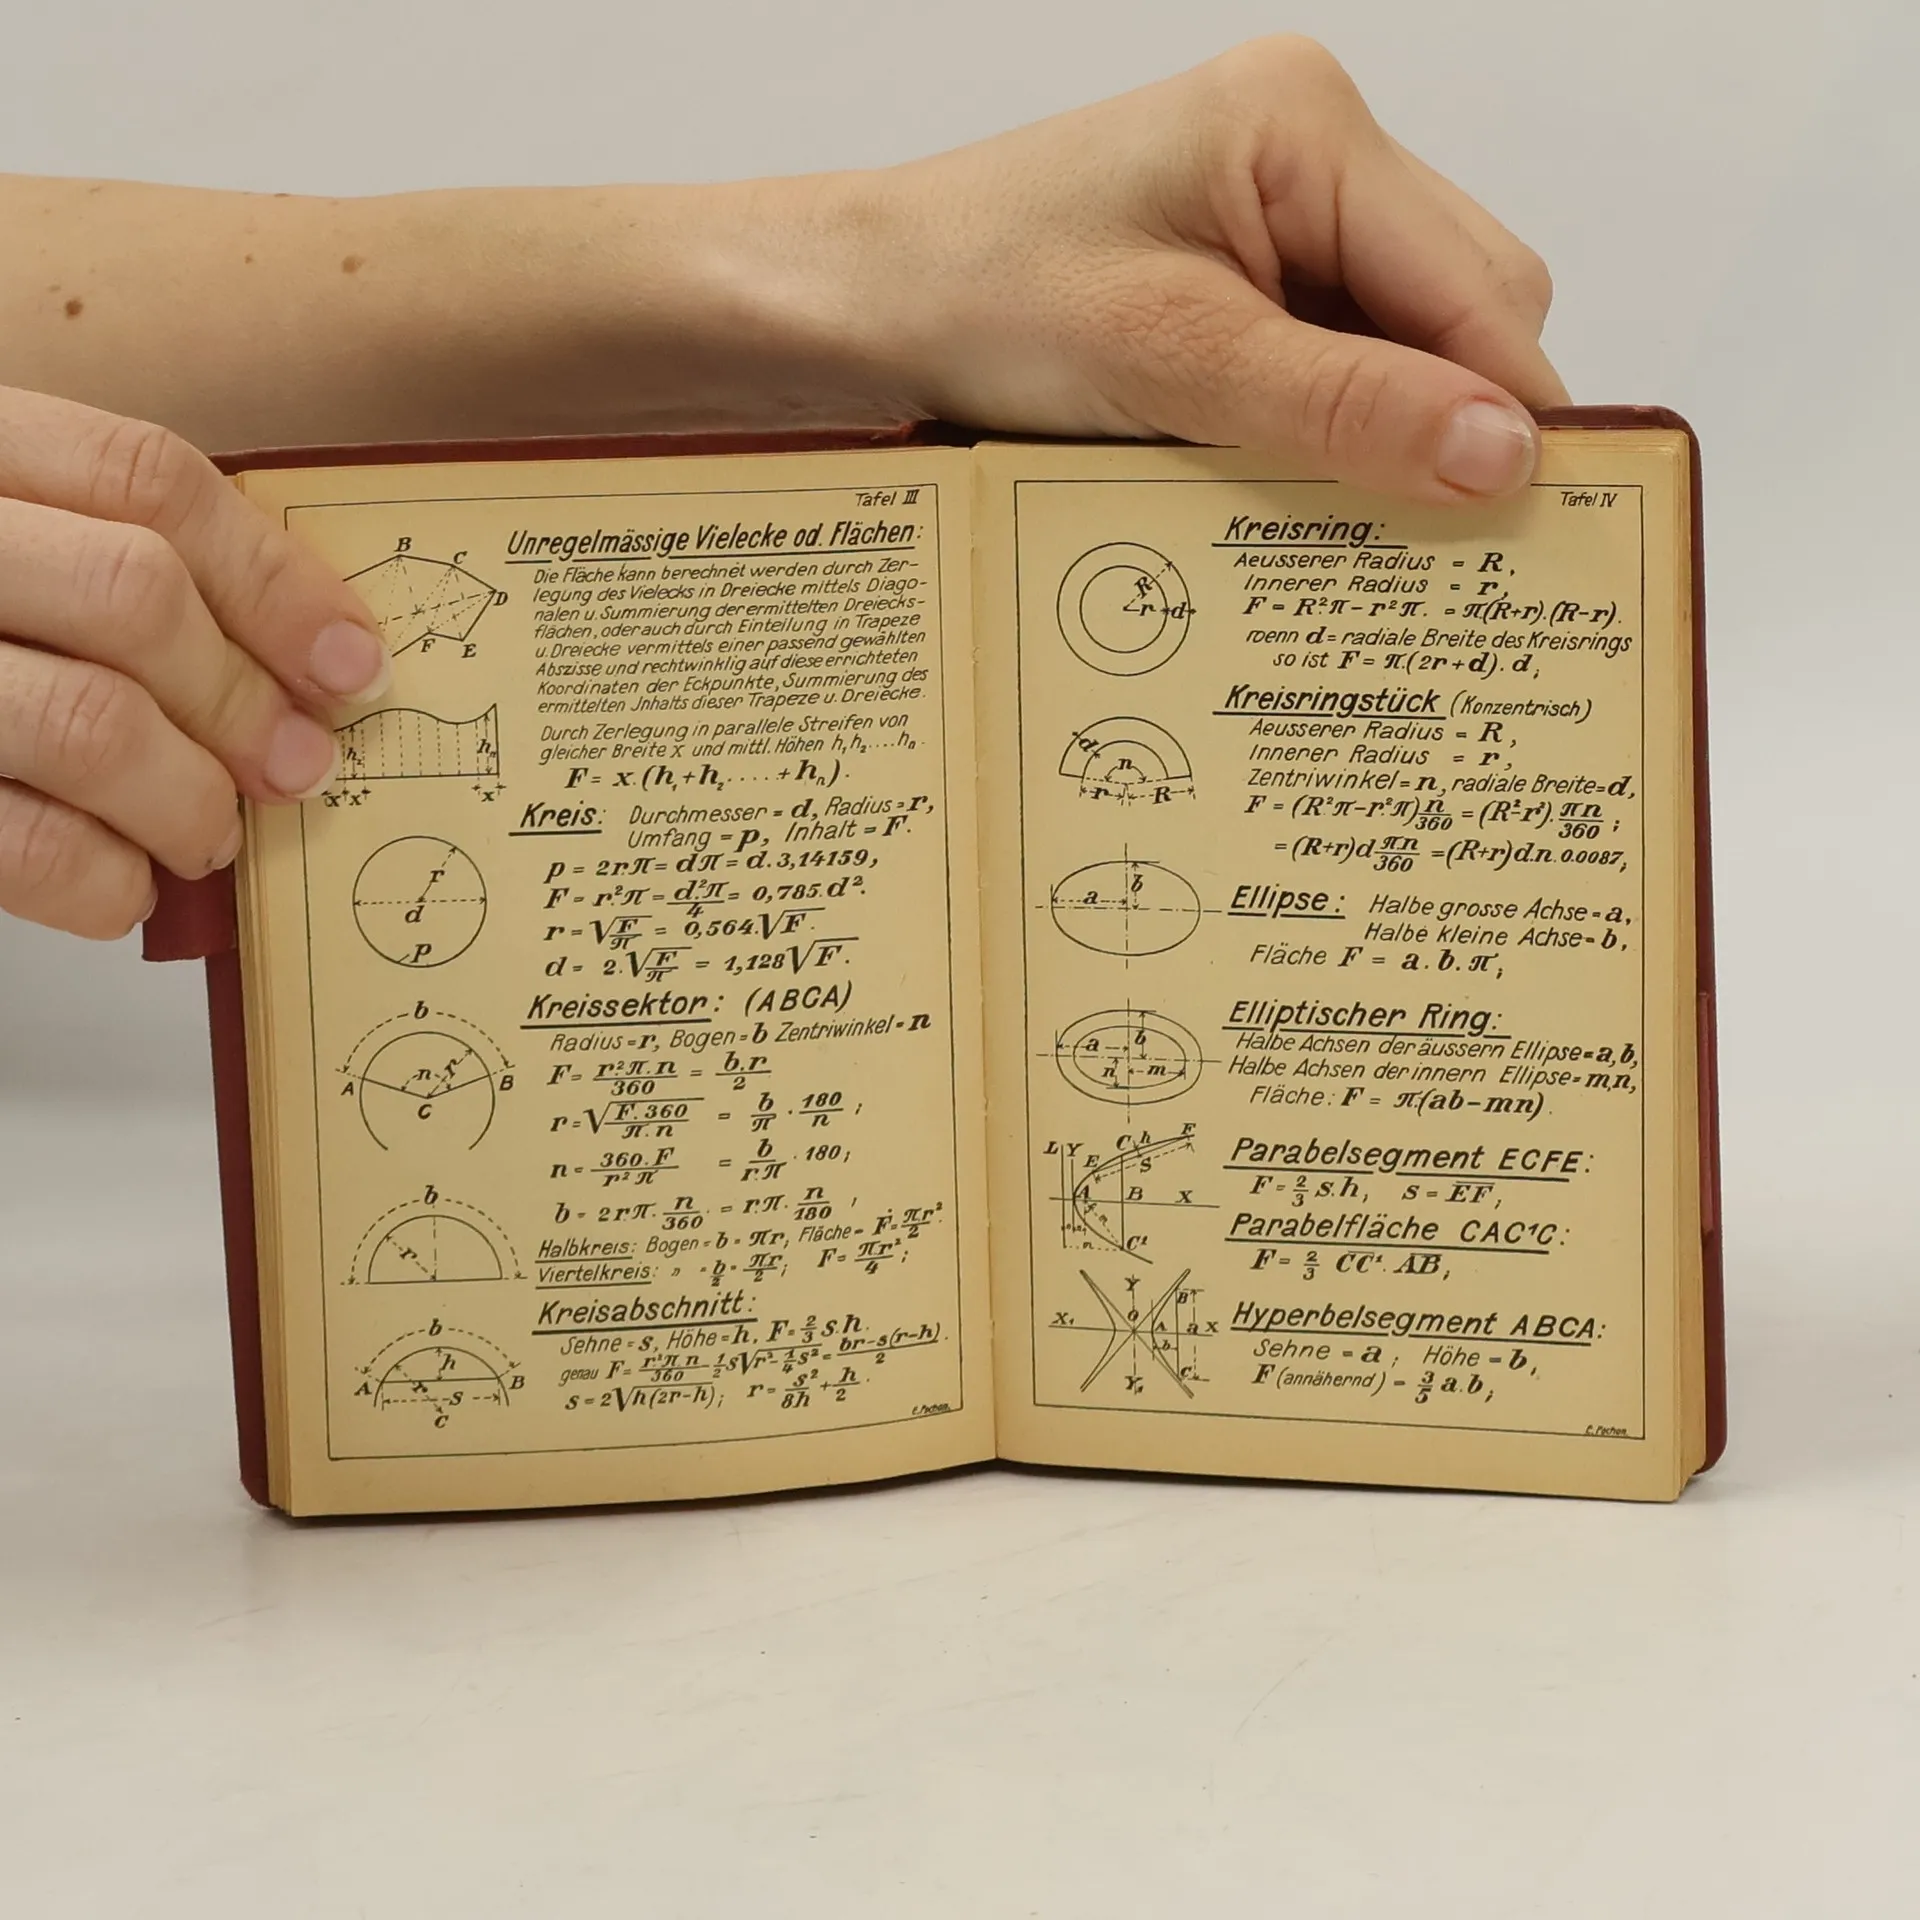 Tafel III
Unregelmässige Vielecke od. Flächen:
Die Fläche kann berechnet werden durch Zer-
legung des Vielecks in Dreiecke mittels Diago-
nalen u. Summierung der ermittelten Dreiecks-
flächen, oder auch durch Einteilung in Trapeze
u. Dreiecke vermittels einer passend gewählten
Abszisse und rechtwinklig auf diese errichteten
Koordinaten der Eckpunkte, Summierung des
ermittelten Jnhalts dieser Trapeze u. Dreiecke.
Durch Zerlegung in parallele Streifen von
gleicher Breite x und mittl. Höhen h₁ h₂....hₙ.
F = x.(h₁+h₂.....+hₙ).
B
C
D
E
F
h₂
hₙ
x x x
Kreis: Durchmesser = d, Radius = r,
Umfang = p, Inhalt = F.
p = 2rπ = dπ = d. 3,14159,
F = r².π = d².π/4 = 0,785.d².
r = √F/π = 0,564.√F.
d = 2.√F/π = 1,128√F.
r
d
p
Kreissektor: (ABCA)
Radius = r, Bogen = b Zentriwinkel = n
F = r².π.n/360 = b.r/2
r = √F.360/π.n = b/π . 180/n ;
n = 360.F/r²π = b/r.π . 180;
b = 2rπ. n/360 . = r.π. n/180 ,
Halbkreis: Bogen = b = πr, Fläche = F = πr²/2
Viertelkreis: „ = b/2 = πr/2; F = πr²/4;
b
n r
A C B
b
r
Kreisabschnitt:
Sehne = s, Höhe = h, F = 2/3 s.h.
genau F = r²π n/360 - 1/2 s√r²-1/4s² = br-s(r-h)/2 .
s = 2√h(2r-h); r = s²/8h + h/2 .
b
h
A r s B
C
Tafel IV
Kreisring:
Aeusserer Radius = R,
Innerer Radius = r,
F = R².π - r²π. = π(R+r).(R-r).
wenn d = radiale Breite des Kreisrings
so ist F = π.(2r+d). d;
R
r d
Kreisringstück (Konzentrisch)
Aeusserer Radius = R,
Innerer Radius = r,
Zentriwinkel = n, radiale Breite = d,
F = (R²π-r².π)n/360 = (R²-r²).πn/360 ;
= (R+r)d πn/360 = (R+r)d.n. 0.0087;
d
n
r R
Ellipse: Halbe grosse Achse = a,
Halbe kleine Achse = b,
Fläche F = a. b. π;
a b
Elliptischer Ring:
Halbe Achsen der äussern Ellipse = a, b,
Halbe Achsen der innern Ellipse = m,n,
Fläche: F = π.(ab-mn).
a b
n m
Parabelsegment ECFE:
F = 2/3 s.h, s = EF;
Parabelfläche CAC¹C:
F = 2/3 CC¹. AB;
L Y C h F
E S
A B X
C¹
Hyperbelsegment ABCA:
Sehne = a ; Höhe = b,
F (annähernd) = 3/5 a.b;
Y B
X₁ O A a X
b
Y₁ C